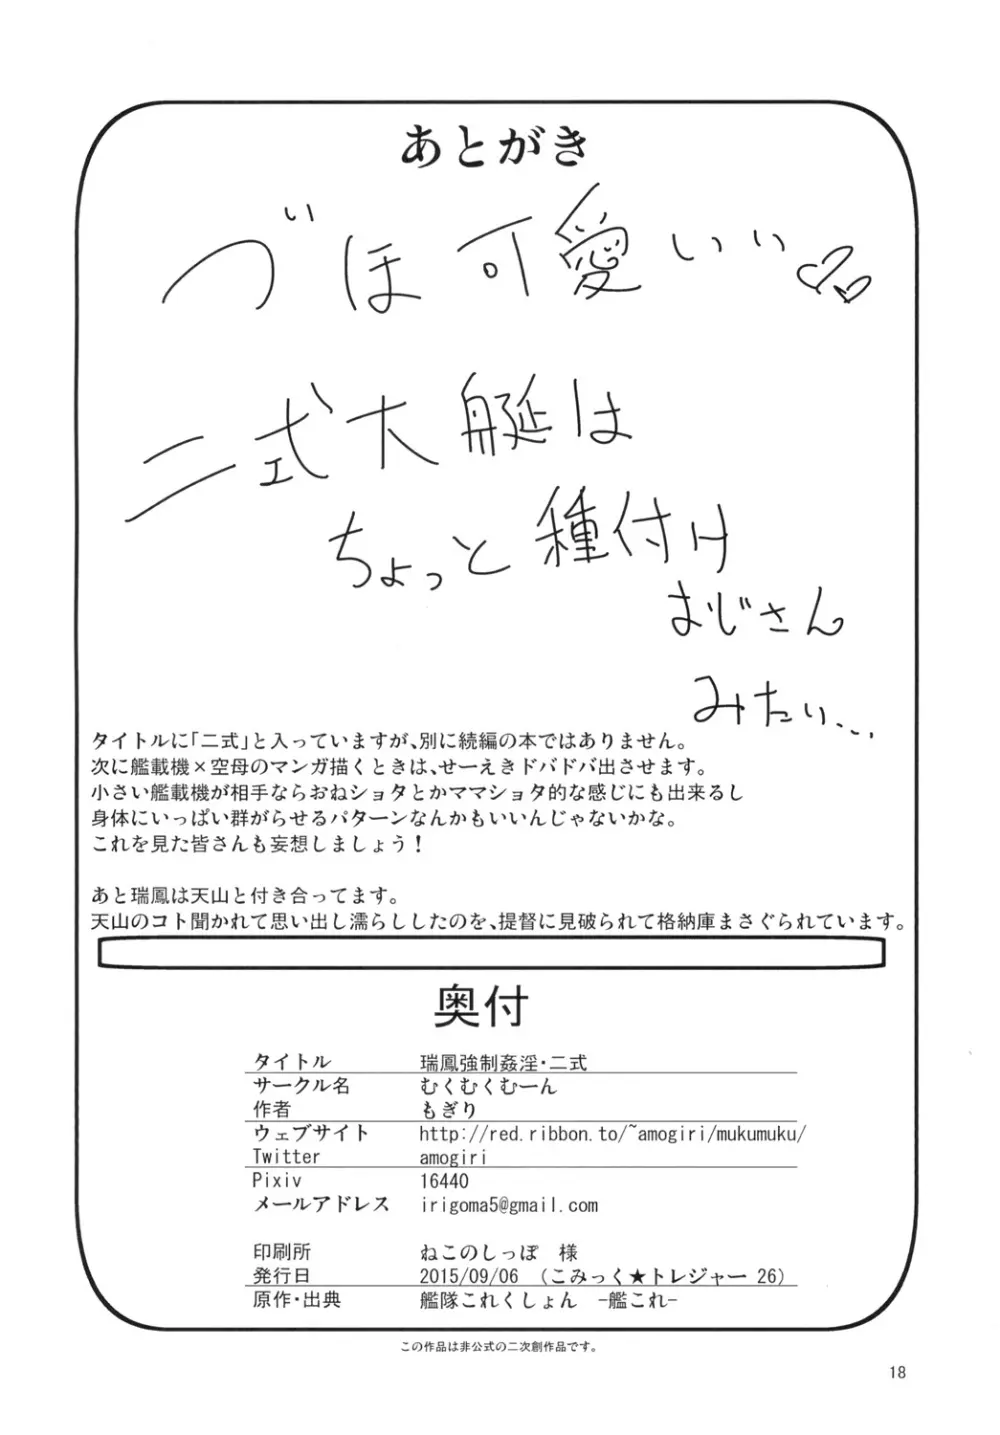 あとがき
づいほ可愛いい
二式大艇は
ちょっと種付け
おじさん
みたい…
タイトルに「二式」と入っていますが、別に続編の本ではありません。
次に艦載機×空母のマンガ描くときは、せーえきドバドバ出させます。
小さい艦載機が相手ならおねショタとかママショタ的な感じにも出来るし
身体にいっぱい群がらせるパターンなんかもいいんじゃないかな。
これを見た皆さんも妄想しましょう！
あと瑞鳳は天山と付き合ってます。
天山のコト聞かれて思い出し濡らししたのを、提督に見破られて格納庫まさぐられています。
奥付
タイトル 瑞鳳強制姦淫・二式
サークル名 むくむくむーん
作者 もぎり
ウェブサイト http://red.ribbon.to/~amogiri/mukumuku/
Twitter amogiri
Pixiv 16440
メールアドレス irigoma5@gmail.com
印刷所 ねこのしっぽ 様
発行日 2015/09/06 （こみっく★トレジャー 26）
原作・出典 艦隊これくしょん -艦これ-
この作品は非公式の二次創作品です。
18